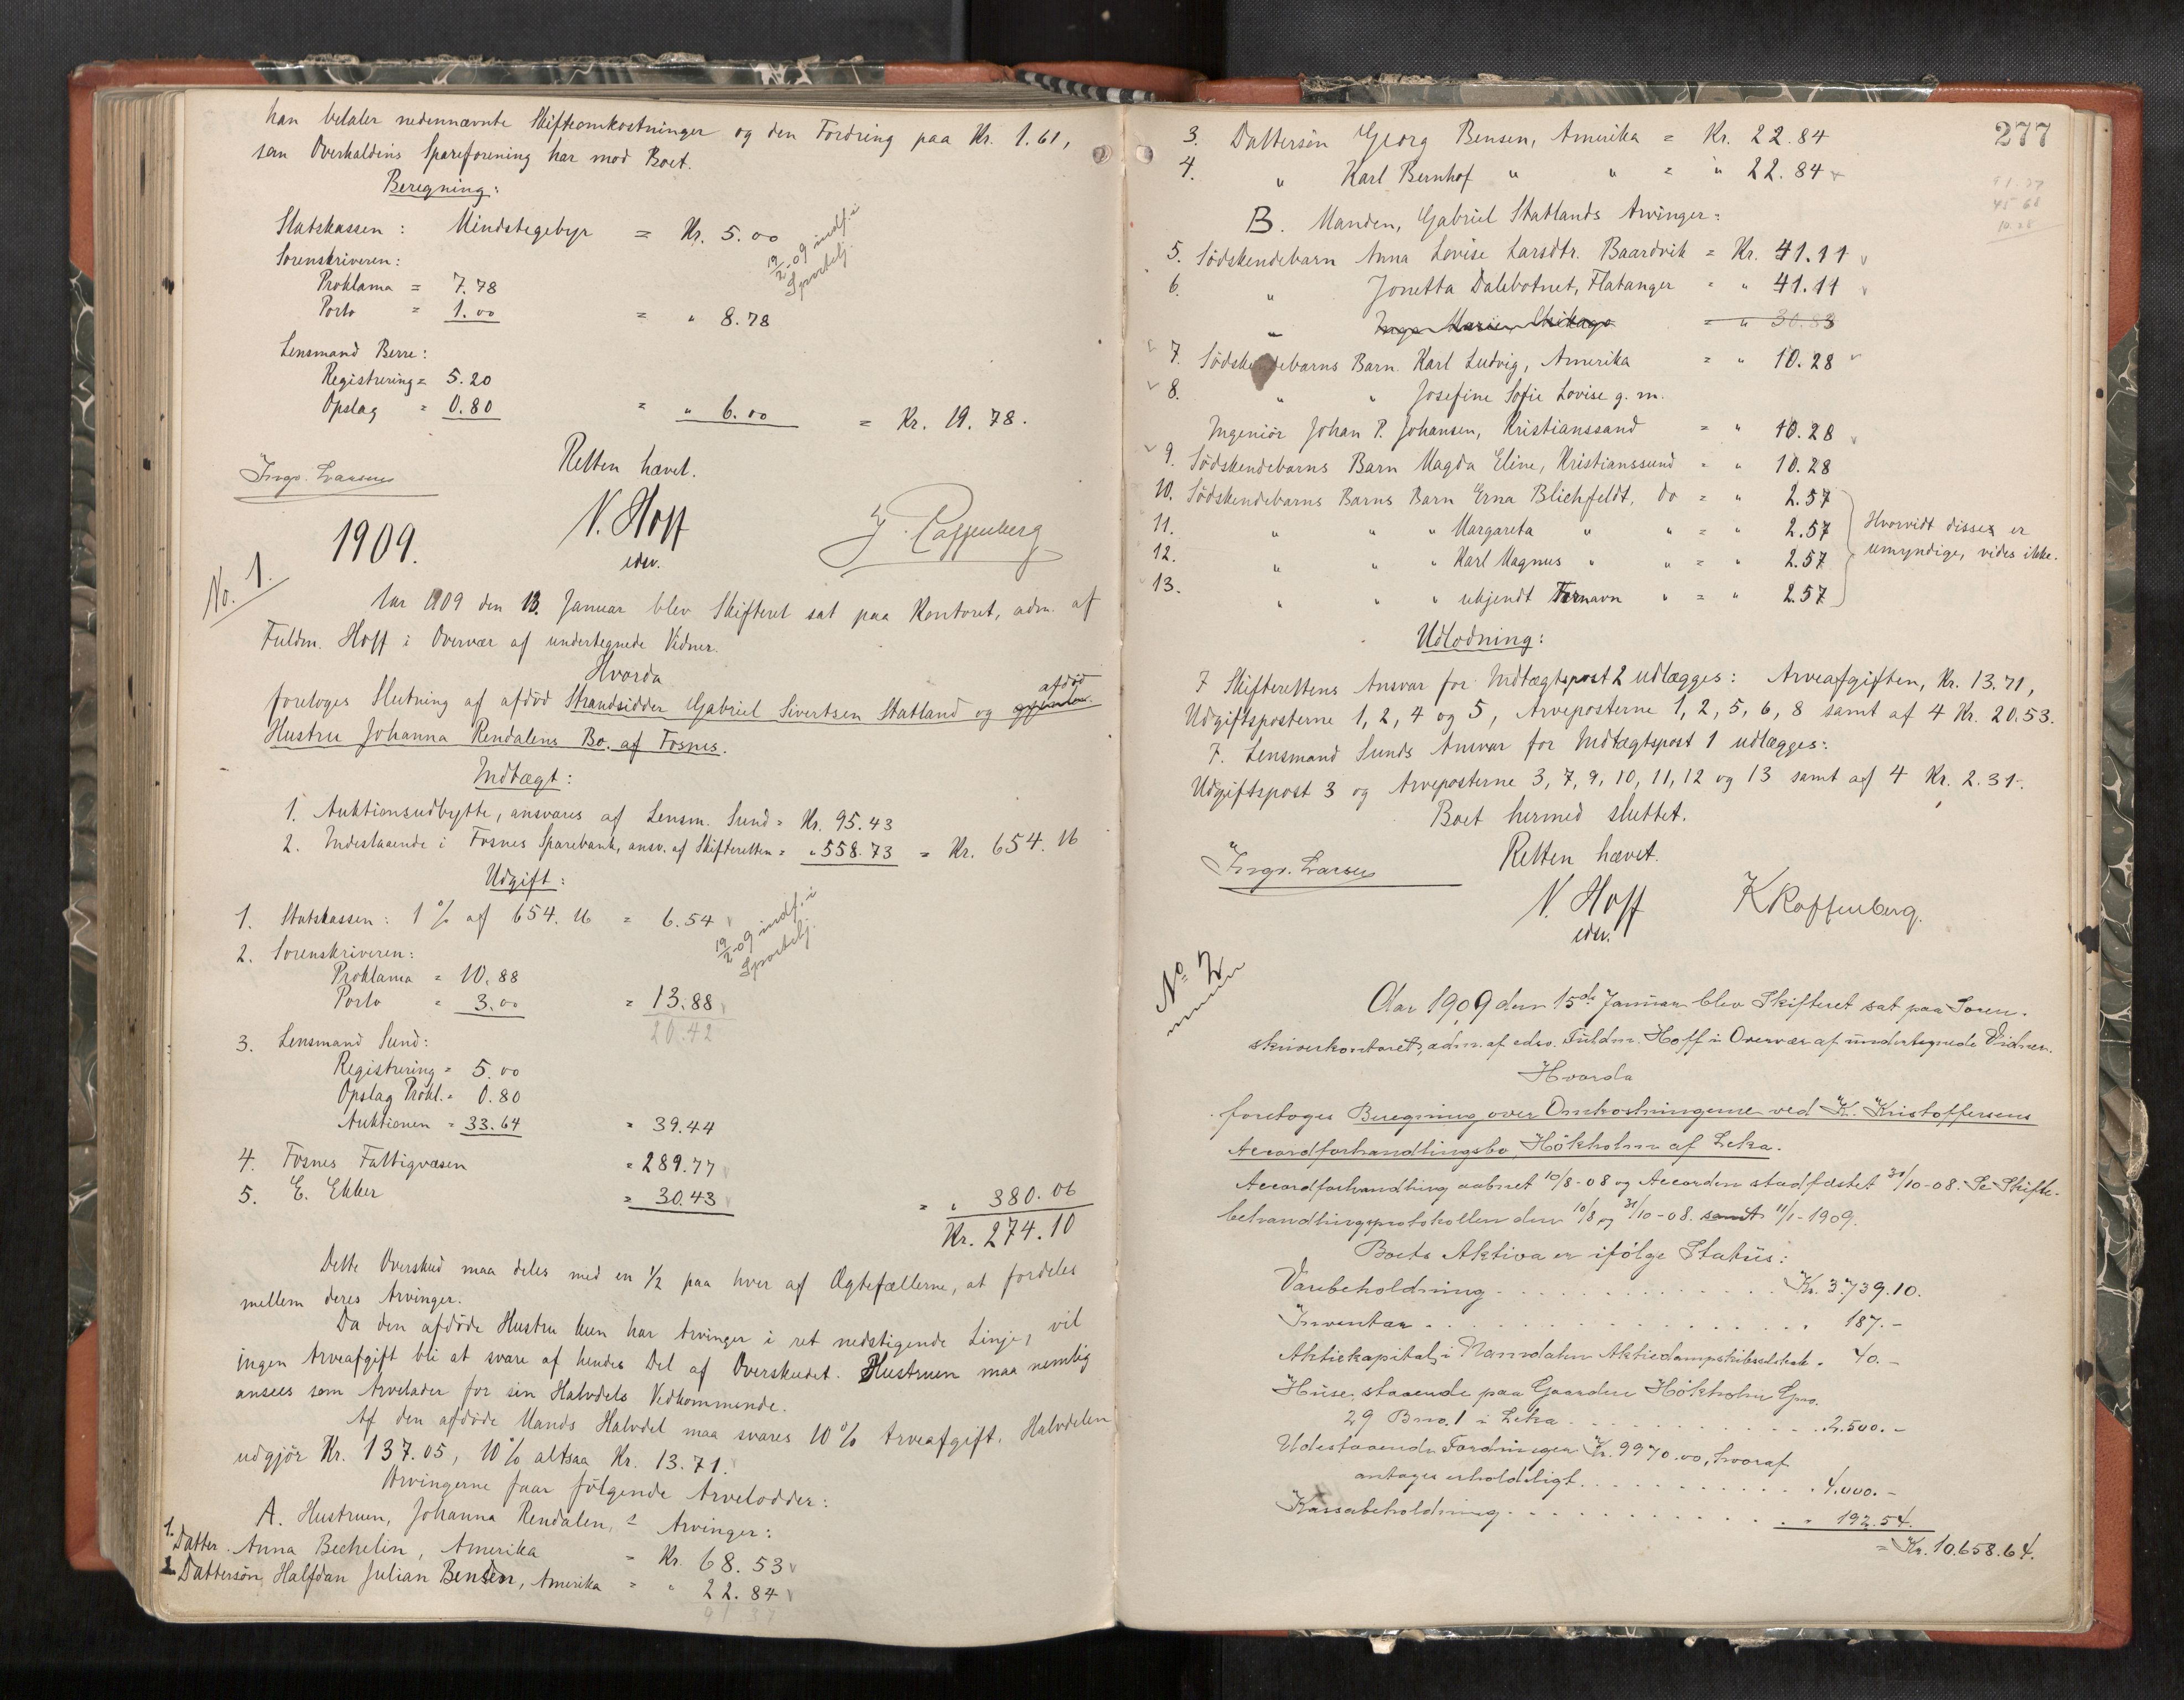 han betaler nedennævnte Skifteomkostninger og den Fordring paa Kr. 1.61,
som Overhaldens Spareforening har mod Boet.
Beregning:
Statskassen: Mindstegebyr = Kr. 5.00
19/2-09 indf. i
Sportelj.
Sorenskriveren:
Proklama = 7.78
Porto = 1.00 = " 8.78
Lensmand Berre:
Registrering = 5.20
Opslag = 0.80 = " 6.00 = Kr. 19.78.
Retten hævet.
Ingv. Larsen
N. Hoff
edsv.
1909.
No. 1.
Aar 1909 den 13. Januar blev Skifteret sat paa Kontoret, adm. af
Fuldm. Hoff i Overvær af undertegnede Vidner.
Hvorda
foretoges Slutning af afdød Strandsidder Gabriel Sivertsen Statland og afdød
Hustru Johanna Rendalens Bo af Fosnes.
Indtægt:
1. Auktionsudbytte, ansvares af Lensm. Sund = Kr. 95.43
2. Indestaaende i Fosnes Sparebank, ansv. af Skifteretten = " 558.73 = Kr. 654.16
Udgift:
1. Statskassen: 1 % af 654.16 = 6.54
19/2-09 indf. i
Sportelj.
2. Sorenskriveren:
Proklama = 10.88
Porto = 3.00 = 13.88
20.42
3. Lensmand Sund:
Registrering = 5.00
Opslag Prokl. = 0.80
Auktionen = 33.64 = 39.44
4. Fosnes Fattigvæsen = 289.77
5. E. Ekker = 30.43 = " 380.06
Kr. 274.10
Dette Overskud maa deles med en 1/2 paa hver af Ægtefællerne, at fordeles
mellem deres Arvinger.
Da den afdøde Hustru kun har Arvinger i ret nedstigende Linje, vil
ingen Arveafgift bli at svare af hendes Del af Overskudet. Hustruen maa nemlig
ansees som Arvelader for sin Halvdels Vedkommende.
Af den afdøde Mands Halvdel maa svares 10 % Arveafgift. Halvdelen
udgjør Kr. 137.05, 10 % altsaa Kr. 13.71.
Arvingerne faar følgende Arvelodder:
A. Hustruen, Johanna Rendalens Arvinger:
1. Datter Anna Bechelin, Amerika = Kr. 68.53
2. Dattersøn Halfdan Julian Bensen, Amerika = " 22.84
277
3. Dattersøn Georg Bensen, Amerika = Kr. 22.84
4. " Karl Bernhof " " = " 22.84
B. Manden, Gabriel Statlands Arvinger:
5. Södskendebarn Anna Lovise Larsdtr. Baardvik = Kr. 41.11
6. " Jonetta Dalebotnet, Flatanger = " 41.11
" Inga Marie Chikago = " 30.83
7. Södskendebarns Barn Karl Ludvig, Amerika = " 10.28
8. " " Josefine Sofie Lovise g. m.
Ingeniør Johan P. Johansen, Kristianssand = " 10.28
9. Södskendebarns Barn Magda Eline, Kristianssund = " 10.28
10. Södskendebarns Barns Barn Erna Blichfeldt, do = " 2.57
11. " " " Margareta " " = " 2.57
12. " " " Karl Magnus " " = " 2.57
13. " " " ukjendt Fornavn " = " 2.57
Hvorvidt disse er
umyndige, vides ikke.
Udlodning:
F. Skifterettens Ansvar for Indtægtspost 2 udlægges: Arveafgiften, Kr. 13.71,
Udgiftsposterne 1, 2, 4 og 5, Arveposterne 1, 2, 5, 6, 8 samt af 4 Kr. 20.53.
F. Lensmand Sunds Ansvar for Indtægtspost 1 udlægges:
Udgiftspost 3 og Arveposterne 3, 7, 9, 10, 11, 12 og 13 samt af 4 Kr. 2.31.
Boet hermed sluttet.
Retten hævet.
Ingv. Larsen
N. Hoff
edsv.
No 2
Aar 1909 den 15de Januar blev Skifteret sat paa Soren-
skriverkontoret, adm. af edsv. Fuldm. Hoff i Overvær af undertegnede Vidner.
Hvorda
foretoges Beregning over Omkostningerne ved K. Kristoffersens
Accordforhandlingsbo, Hökholm af Leka.
Accordforhandling aabnet 10/8-08 og Accorden stadfæstet 31/10-08. Se Skifte-
behandlingsprotokollen den 10/8 og 31/10-08. samt 11/1-1909.
Boets Aktiva er ifølge Status:
Varebeholdning . . . Kr. 3.739.10.
Inventar . . . 187.-
Aktiekapital i Namdalen Aktiedampskibsselskab. 40.-
Huse, staaende paa Gaarden Hökholm Gno.
29 Bno. 1 i Leka . . . 2.500.-
Udestaaende Fordringer Kr. 9970.00, hvoraf
antages erholdeligt . . . 4.000.-
Kassabeholdning . . . 192.54.
= Kr. 10.658.64.